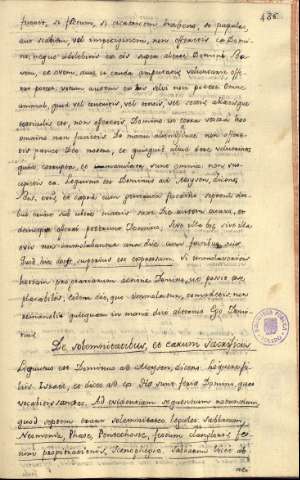 486
fuerit, si fractum, si cicatricem habens, si papulas,
aut scabiem, vel impetiginem, non offeretis ea Domino,
neque adolebitis ex eis super altare Domini. Bovem,
et ovem, aure et cauda amputatis, voluntarie offerre
potes, votum autem ex eis solvi non potest. Omne
animal, quod vel contritis, vel tusis, vel sectis ablatisque
testiculis est, non offeretis Domino, et in terra vestra hoc
omnino ne faciatis. De manu alienigenae non offeretis
panes Deo vestro, et quidquid aliud dare voluerint,
quia corrupta, et maculata sunt omnia: non suscipietis
ea. Loquutus est Dominus ad Moysen, dicens,
Bos, ovis, et capra, cum genita fuerint, septem diebus
erunt sub ubere matris suae, die autem octavo, et
deinceps offerri poterunt Domino. Sive illa bos, sive illa
ovis, non immolabuntur una die cum foetibus suis.
Si immolaveritis
hostiam pro gratiarum actione Domino, ut possit esse
placabilis, eodem die, comedetis, non
remanebit quidquam in mane alterius diei. Ego Dominus.
De solemnitatibus, et earum sacrificiis
Loquutus est Dominus ad Moysen, dicens, Loquere filiis
Israel, et dices ad eos. Hae sunt feriae Domini, quas
vocabitis sanctas. Ad evidentiam sequentium notandum,
quod septem erant solemnitates legales: Sabbatum,
Neomenia, Phase, Pentecostes, festum clangoris, festum
propitiationis, Scenophegia. Sabbatum